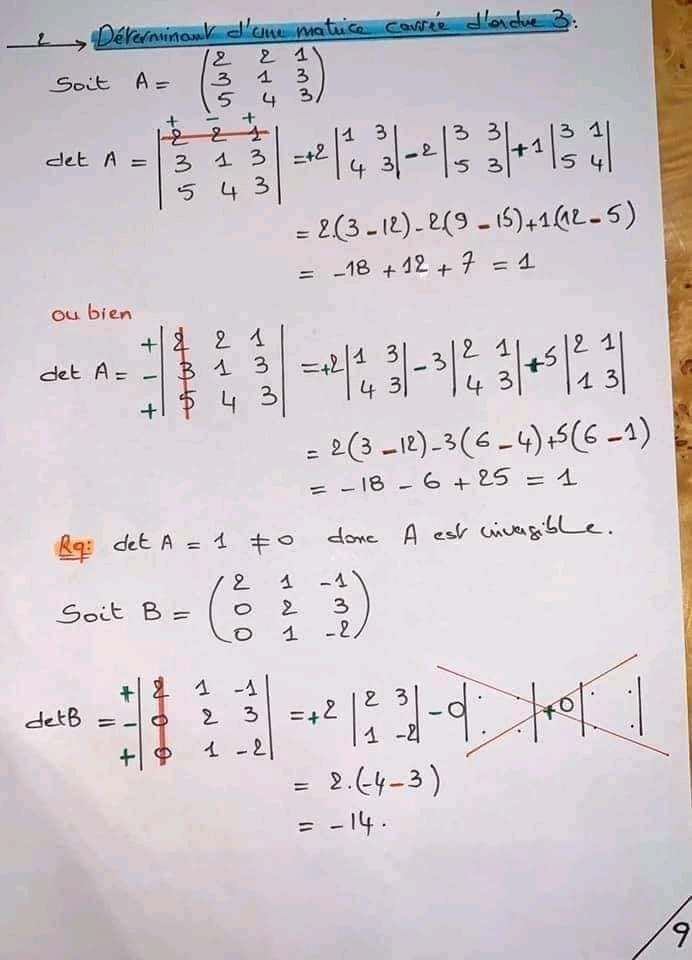 2 → Déterminant d'une matrice carrée d'ordre 3:
Soit A = (2 2 1
3 1 3
5 4 3)
+ - +
det A = |2 2 1
3 1 3
5 4 3| = +2 |1 3
4 3| - 2 |3 3
5 3| + 1 |3 1
5 4|
= 2.(3 - 12) - 2(9 - 15) + 1.(12 - 5)
= -18 + 12 + 7 = 1
ou bien
det A = + - + |2 2 1
3 1 3
5 4 3| = +2 |1 3
4 3| - 3 |2 1
4 3| + 5 |2 1
1 3|
= 2(3 - 12) - 3(6 - 4) + 5(6 - 1)
= -18 - 6 + 25 = 1
Rq: det A = 1 ≠ 0 donc A est inversible.
Soit B = (2 1 -1
0 2 3
0 1 -2)
det B = + - + |2 1 -1
0 2 3
0 1 -2| = +2 |2 3
1 -2| - 0 |. .
. .| + 0 |. .
. .|
= 2.(-4 - 3)
= -14.
9